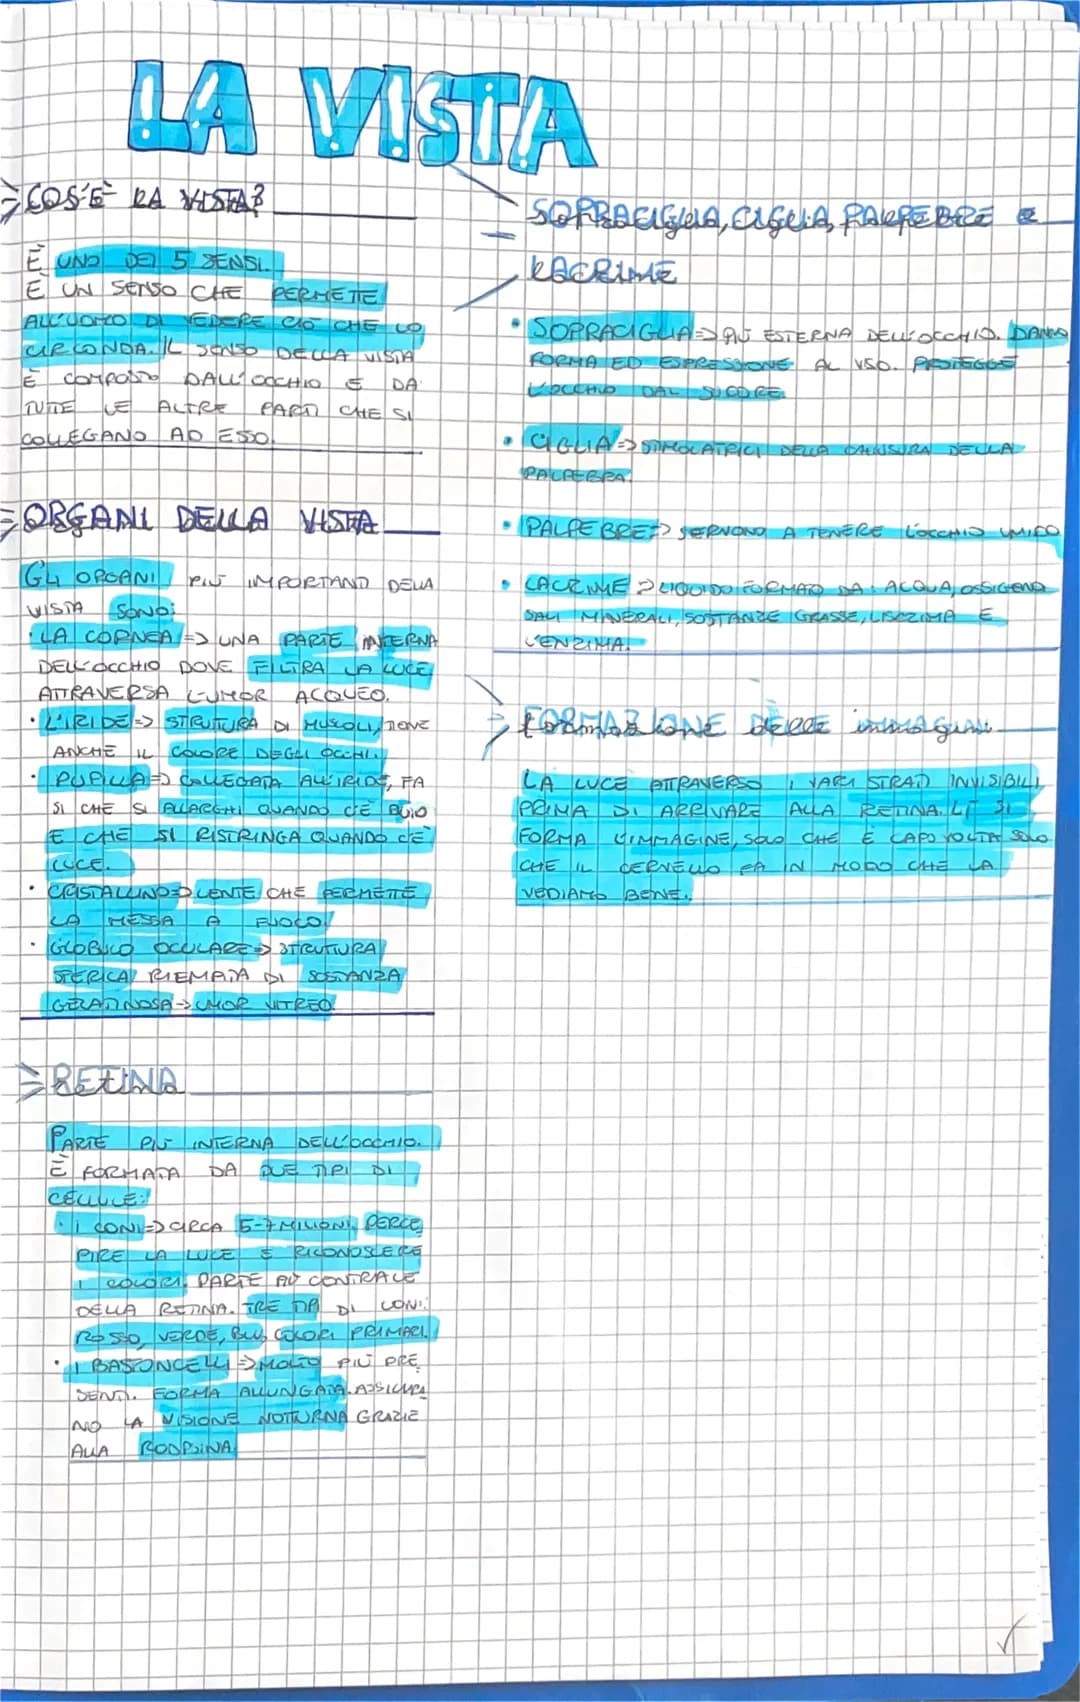 LA VISTA
COS'È LA VISTA?
È UNO DEI 5 SENSI.
È UN SENSO CHE PERMETE
ALL'UOMO DI VEDERE CIÒ CHE LO
CIRCONDA. IL SENSO DELLA VISTA
È COMPOSTO DALL'OCCHIO E DA
TUTTE LE ALTRE PARTI CHE SI
COLLEGANO AD ESSO.
ORGANI DELLA VISTA
GLI ORGANI PIÙ IMPORTANTI DELLA
VISTA SONO:
• LA CORNEA => UNA PARTE INTERNA
DELL'OCCHIO DOVE FILTRA LA LUCE
ATTRAVERSA L'UMOR ACQUEO.
• L'IRIDE => STRUTURA DI MUSCOLI, DOVE
ANCHE IL COLORE DEGLI OCCHI.
• PUPILLA => COLLEGATA ALL'IRIDE, FA
SI CHE SI ALLARGHI QUANDO C'È BUIO
E CHE SI RISTRINGA QUANDO C'È
LUCE.
• CRISTALLINO => LENTE CHE PERMETTE
LA MESSA A FUOCO.
• GLOBULO OCULARE => STRUTURA
SFERICA RIEMPITA DI SOSTANZA
GELATINOSA -> UMOR VITREO.
RETINA
PARTE PIÙ INTERNA DELL'OCCHIO.
È FORMATA DA DUE TIPI DI
CELLULE:
• I CONI => CIRCA 5-7 MILIONI, PERCE
PIRE LA LUCE E RICONOSCERE
I COLORI. PARTE PIÙ CENTRALE
DELLA RETINA. TRE TIPI DI CONI:
ROSSO, VERDE, BLU, COLORI PRIMARI.
• I BASTONCELLI => MOLTO PIÙ PRE
SENTI. FORMA ALLUNGATA. ASSICURA
NO LA VISIONE NOTTURNA GRAZIE
ALLA RODPSINA.
SOPRACIGLIA, CIGLIA, PALPEBRE e
LACRIME
• SOPRACIGLIA => PIÙ ESTERNA DELL'OCCHIO. DANNO
FORMA ED ESPRESSIONE AL VISO. PROTEGGE
L'OCCHIO DAL SUDORE.
• CIGLIA => STIMOLATRICI DELLA CHIUSURA DELLA
PALPEBRA.
• PALPEBRE => SERVONO A TENERE L'OCCHIO UMIDO
• LACRIME => LIQUIDO FORMATO DA: ACQUA, OSSIGENO
SALI MINERALI, SOSTANZE GRASSE, LISOZIMA E
L'ENZIMA.
FORMAZIONE DELLE immagini
LA LUCE ATTRAVERSO I VARI STRATI INVISIBILI,
PRIMA DI ARRIVARE ALLA RETINA. LÌ SI
FORMA L'IMMAGINE, SOLO CHE È CAPOVOLTA SOLO
CHE IL CERVELLO FA IN MODO CHE LA
VEDIAMO BENE.